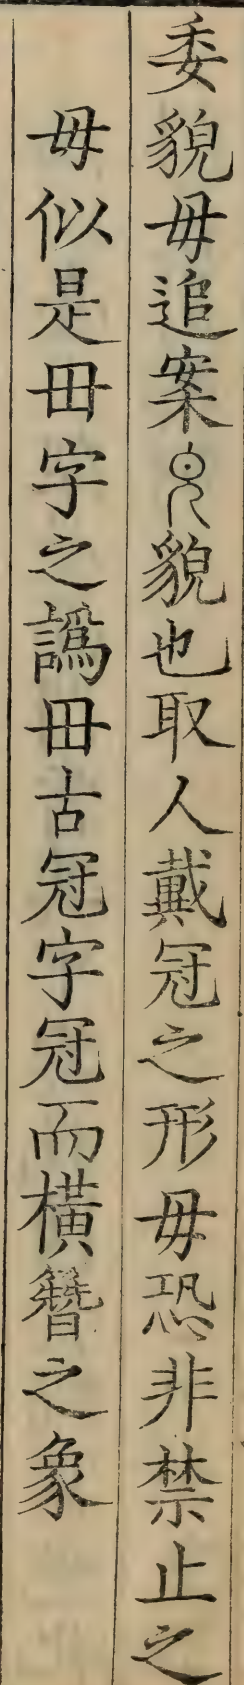 委貌毋追案皃貌也取人戴冠之形毋恐非禁止之
毋似是毌字之譌毌古冠字冠而橫簪之象